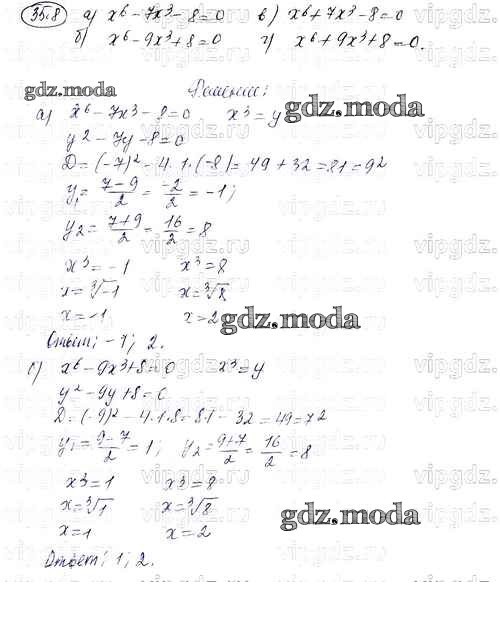 35.8 а) x⁶ - 7x³ - 8 = 0 в) x⁶ + 7x³ - 8 = 0
б) x⁶ - 9x³ + 8 = 0 г) x⁶ + 9x³ + 8 = 0.
gdz.moda Решение: gdz.moda
а) x⁶ - 7x³ - 8 = 0 x³ = y
y² - 7y - 8 = 0
D = (-7)² - 4·1·(-8) = 49 + 32 = 81 = 9²
y₁ = (7-9)/2 = -2/2 = -1;
y₂ = (7+9)/2 = 16/2 = 8
x³ = -1 x³ = 8
x = ³√-1 x = ³√8
x = -1 x = 2
gdz.moda
Ответ: -1; 2.
б) x⁶ - 9x³ + 8 = 0 x³ = y
y² - 9y + 8 = 0
D = (-9)² - 4·1·8 = 81 - 32 = 49 = 7²
y₁ = (9-7)/2 = 1; y₂ = (9+7)/2 = 16/2 = 8
x³ = 1 x³ = 8
x = ³√1 x = ³√8
x = 1 x = 2
gdz.moda
Ответ: 1; 2.
vipgdz.ru